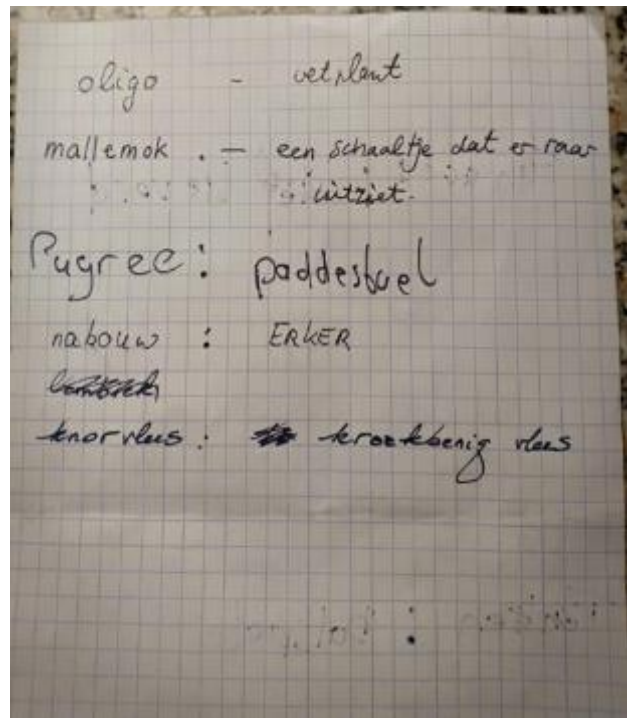 oligo - vetplant
mallemok . - een schaaltje dat er raar
uitziet.
Pugree: paddestoel
nabouw : ERKER
knorvlees : kroakbenig vlees